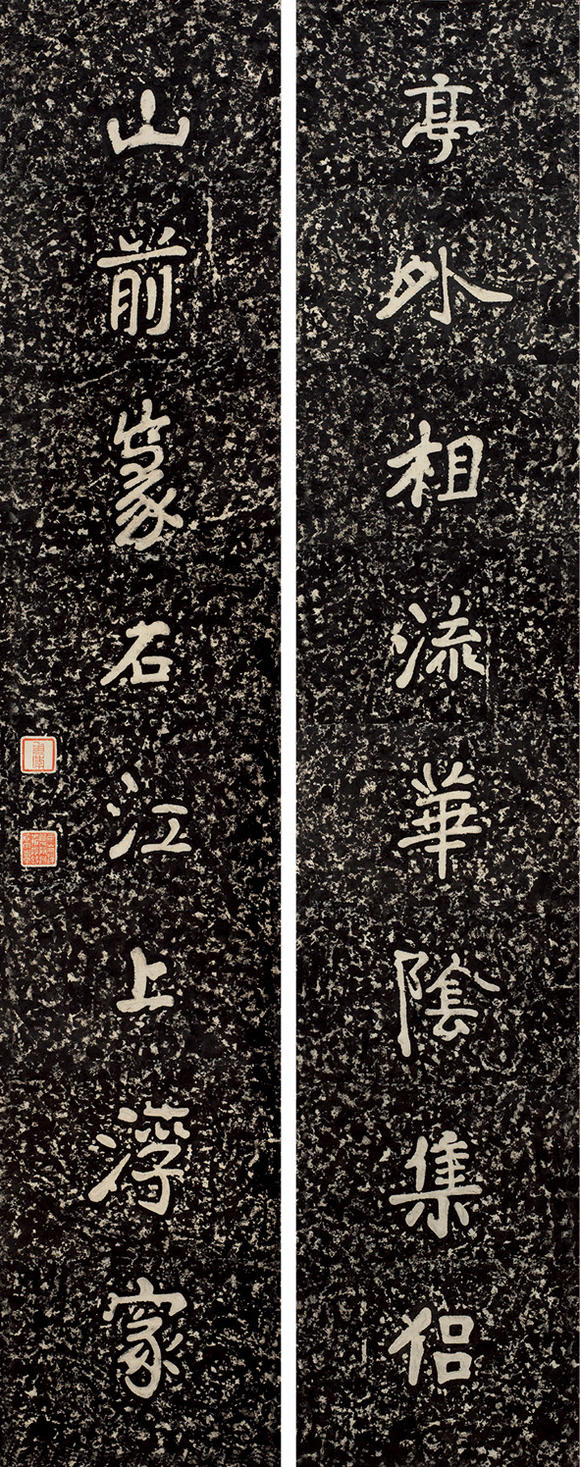 亭外相流華陰集侶
山前篆石江上浮家